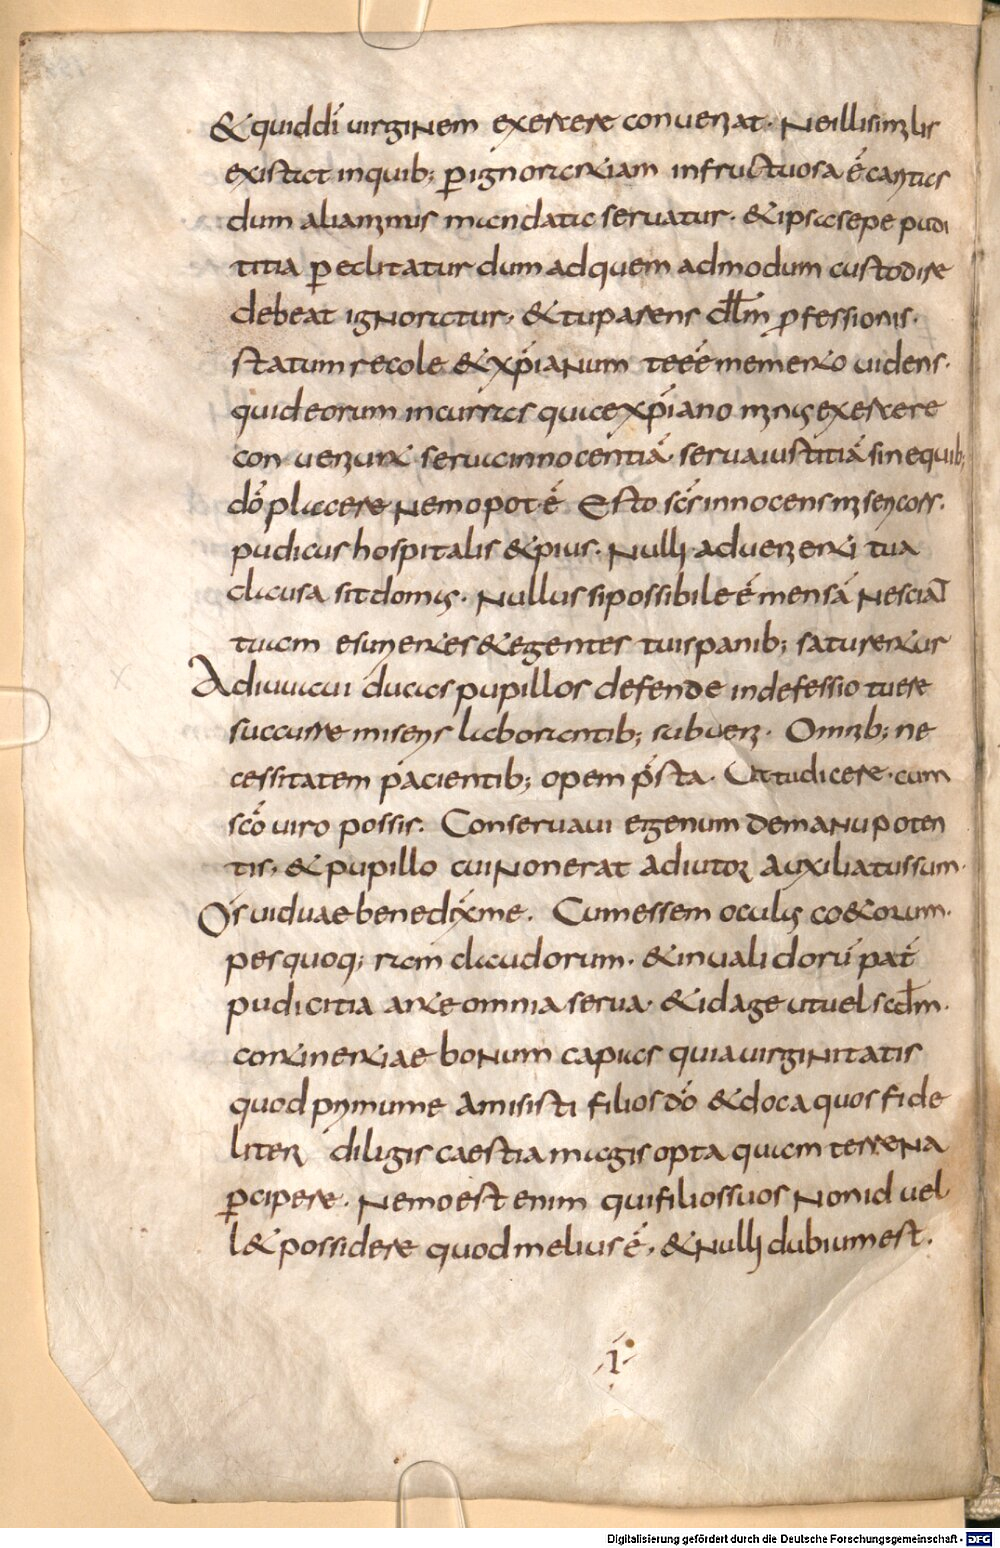 & quid dī virginem exercere conveniat. Ne illis similis
existat in quib; p ignorantiam infructuosa ē castitas
dum aliam minis mandata servatur. & ipsa sepe pudi
titia periclitatur dum ad quem ad modum custodire
debeat ignoratur. & tu parens ad professionis.
statum recole & xpianum te eē memento videns.
quid eorum incurras quae xpiano minus exercere
conveniunt serva innocentiā. serva iustitiā sine quib;
dō placere nemo pot ē Esto scs innocens misericors.
pudicus hospitalis & pius. Nulli advenienti tua
clausa sit domus. Nullus si possibile ē mensā nesciat
tuam esurientes & egentes tuis panib; saturentur
Adiuva viduas pupillos defende indefessio tuere
succurre miseris laborantib; subveni. Omnib; ne
cessitatem pacientib; opem p̄sta. Ut tu dicere. cum
scō viro possis. Conservavi egenum de manu poten
tis. & pupillo cui non erat adiutor auxiliatus sum.
Os viduae benedixit me. Cum essem oculus caecorum.
pes quoq; eram claudorum. & invalidorū pat
pudicitia ante omnia serva. & id age ut vel scdm.
continentiae bonum capias quia virginitatis
quod prymum e amisisti filios dō & doca quos fide
liter diligis caestia magis opta quam terrena
pcipere. Nemo est enim qui filios suos non id vel
l& possidere quod melius ē. & nulli dubium est.
.i.
Digitalisierung gefördert durch die Deutsche Forschungsgemeinschaft - DFG